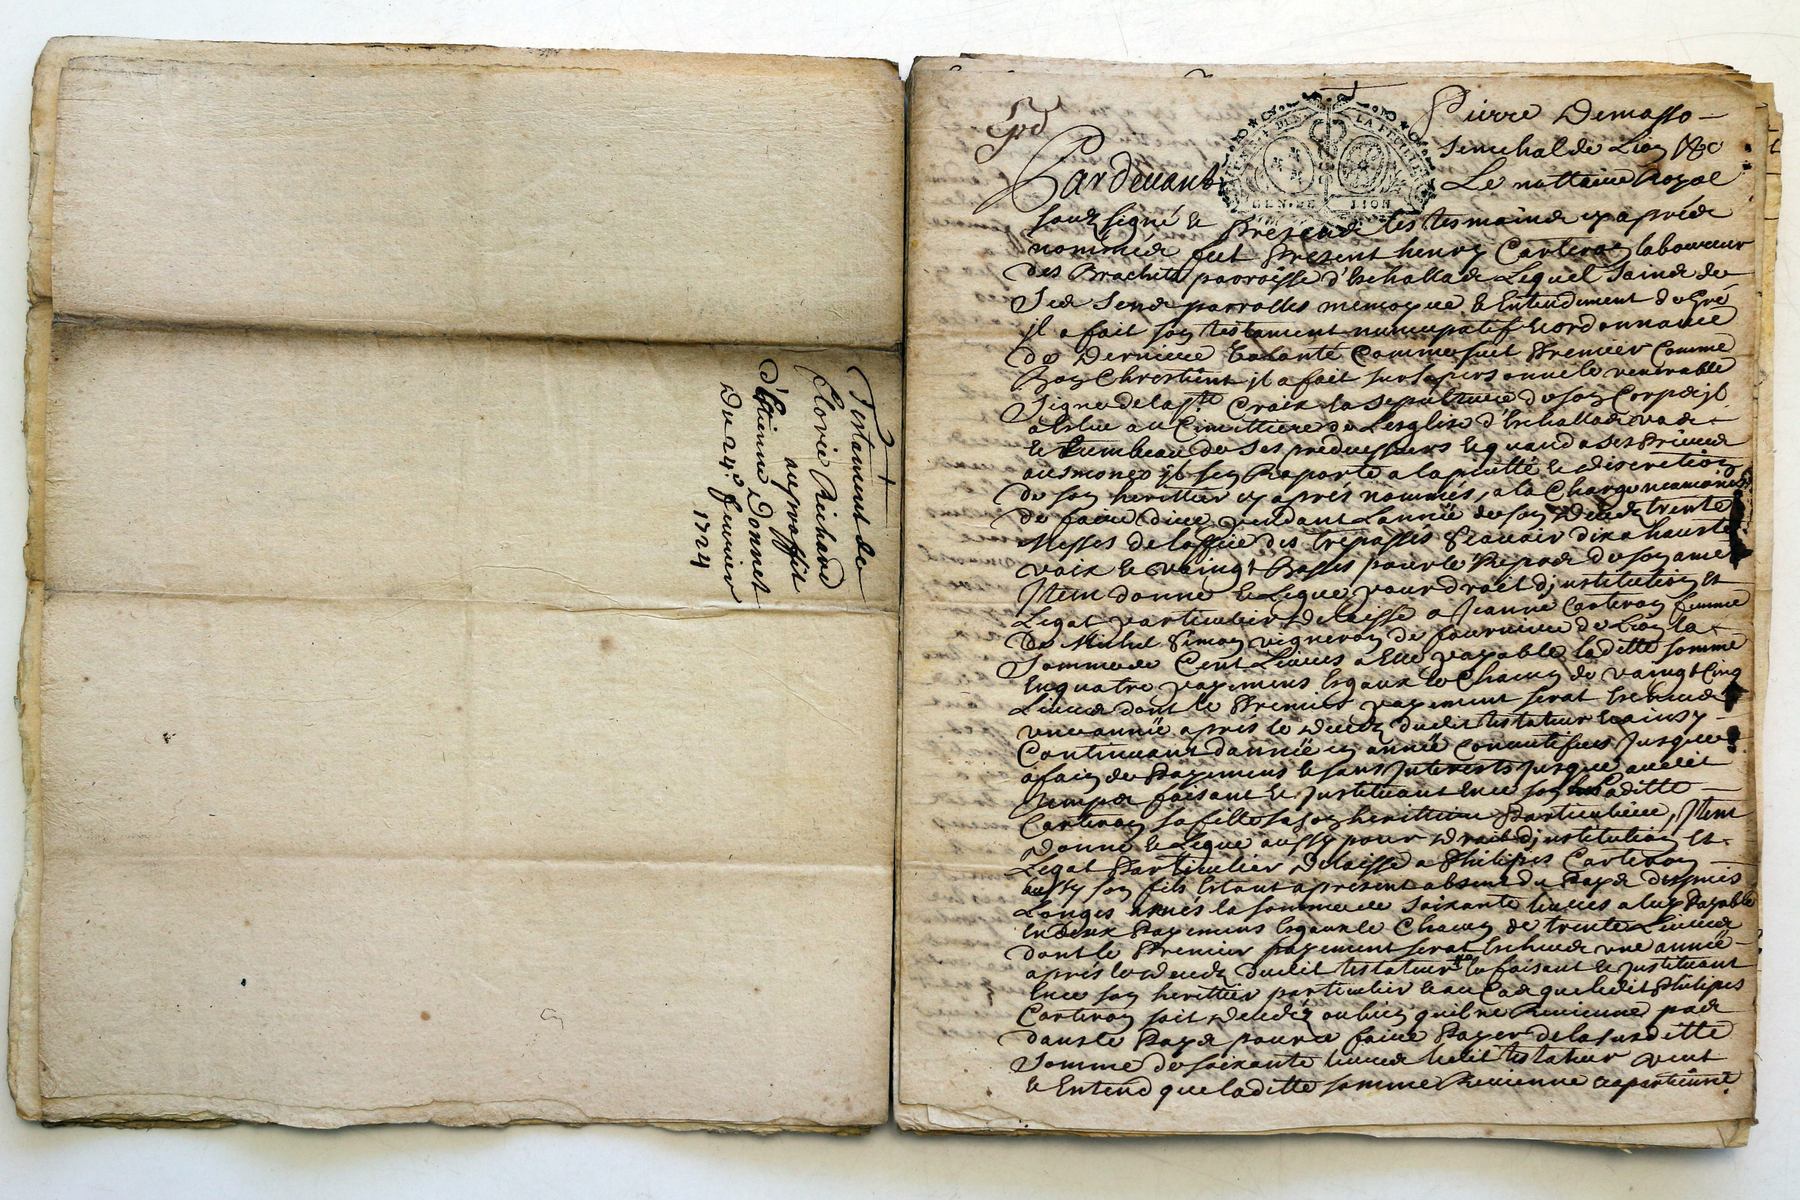 Testament de
Florie Richard
au proffit
d'Etienne Donnet
Du 24e feuvrier
1724
Pierre Demasso
Senechal de Lion &c
Pardeuant
Le nottaire Royal
GEN DE LION
souzsigné & presents les tesmoins cy aprés
nommés fut present henry Carteron laboureur
des Brachets parroisse d'Eschallas Lequel sain de
ses sens parrolles memoyre & Entendement de gré
jl a fait son testament nuncupatif & ordonnance
de Derniere volonté Comme suit Premier Comme
Bon Chrestient jl a fait sur sa personne le venerable
signe de la ste Croix la sepulture de son Corps jl
a Eslue au Cimittiere de Lesglise d'Eschallas
& tumbeau de ses predecesseurs & quand a ses
ausmones jl sen Raporte a la piette & discretion
de son herittier cy aprés nommés, a la Charge
de faire dire pendant Lannée de son deceds trente
Messes de loffice des trepassés scavoir dix a haute
voix & vaingt Basses pour le Repos de son ame
Jtem donne & Legue pour droit d'jnstitution et
Legat particulier delaisse a Jeanne Carteron femme
de Michel Simon vigneron de de Lion la
Somme de Cent Livres a Elle payable laditte somme
En quatre payemens Esgaux & Chacun de vaingt Cinq
Livres dont le Premier payement serat Escheu
une année aprés le deceds dudit testateur & ainsy
Continuant d'année en année Consecutifues Jusques
a fain de Payemens & sans jnterests Jusque audit
temps faisant & jnstituant En ce son laditte
Carteron sa fille son herittiere Particuliere, Jtem
Donne & Legue aussy pour droit d'jnstitution et
Legat Particulier Delaisse a Philipes Carteron
aussy son fils Estant apresent absent du Pays despuis
Longes annés la somme de soixante livres a luy Payable
En Deux Payemens Esgaux & Chacun de trente Livres
dont le Premier payement serat Escheu une année
aprés le deceds dudit testateur le faisant & jnstituant
En ce son herittier particulier & au Cas que ledit Philipes
Carteron soit decedéz ou bien quil ne Revienne pas
dans le Pays pour se faire Payer de la susditte
Somme de soixante livres ledit testateur veut
& Entend que laditte somme Revienne & apartienne